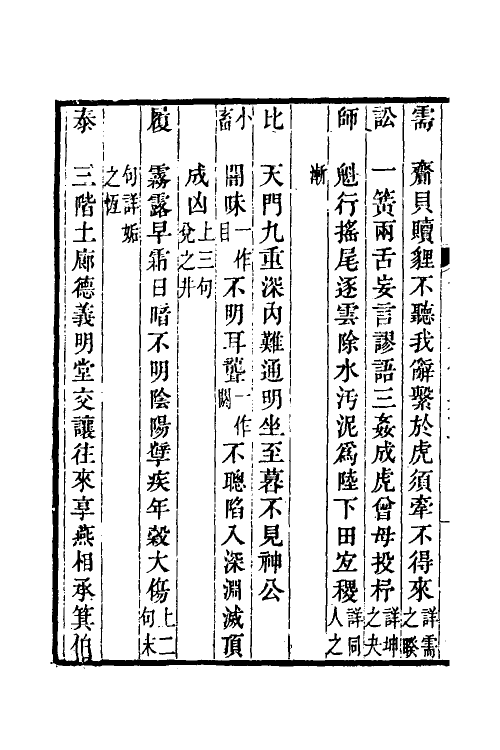 需　齎貝贖貍不聽我辭繫於虎須牽不得來詳需之睽
訟　一簧兩舌妄言謬語三姦成虎曾母投杼詳坤之夬
師　魁行搖尾逐雲除水汚泥爲陸下田宜稷詳同人之
漸
比　天門九重深內難通明坐至暮不見神公
小畜　闇昧一作目不明耳聾一作闕不聰陷入深淵滅頂
成凶上三句兌之井
履　霧露早霜日暗不明陰陽孽疾年穀大傷上二句末
句詳姤之恆
泰　三階土廊德義明堂交讓往來享燕相承箕伯